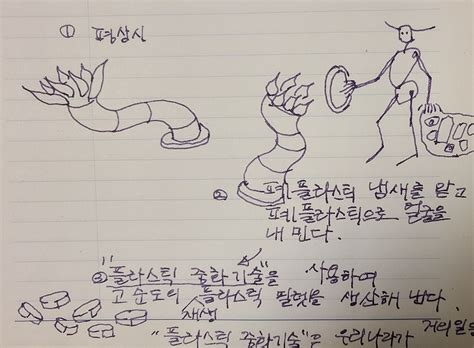 ① 평상시
② 폐플라스틱 냄새를 맡고
폐플라스틱으로 얼굴을
내민다.
③ "플라스틱 중화기술"을 사용하여
고순도의 플라스틱 펠렛을 생산해 냅다.
재생
"플라스틱 중합기술"은 우리나라가 거의 일등